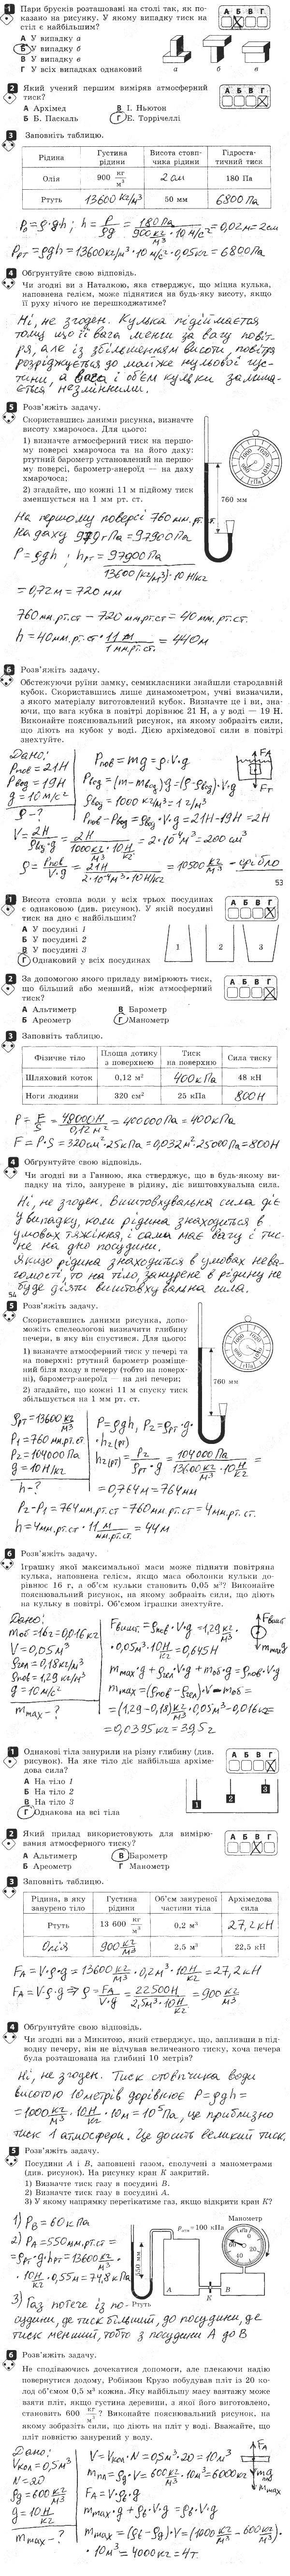 1 Пари брусків розташовані на столі так, як по-
казано на рисунку. У якому випадку тиск на
стіл є найбільшим?
А Б В Г
А У випадку а
Б У випадку б
В У випадку в
Г У всіх випадках однаковий
а б в
2 Який учений першим виміряв атмосферний
тиск?
А Б В Г
А Архімед В І. Ньютон
Б Б. Паскаль Г Е. Торрічеллі
3 Заповніть таблицю.
Рідина Густина рідини Висота стовпчика рідини Гідростатичний тиск
Олія 900 кг/м³ 2 см 180 Па
Ртуть 13600 кг/м³ 50 мм 6800 Па
P₀ = ρgh; h = P/ρg = 180 Па/(900 кг/м³ · 10 м/с²) = 0,02 м = 2 см
Pрт = ρgh = 13600 кг/м³ · 10 м/с² · 0,05 м = 6800 Па
4 Обґрунтуйте свою відповідь.
Чи згодні ви з Наталкою, яка стверджує, що міцна кулька,
наповнена гелієм, може піднятися на будь-яку висоту, якщо
її руху нічого не перешкоджатиме?
Ні, не згоден. Кулька підіймається
тому, що її вага менш за вагу повіт-
ря, але із збільшенням висоти, повітря
розріджується до майже нульової гус-
тини, а вага і об'єм кульки залиша-
ється незмінними.
5 Розв'яжіть задачу.
Скориставшись даними рисунка, визначте
висоту хмарочоса. Для цього:
1) визначте атмосферний тиск на першо-
му поверсі хмарочоса та на його даху:
ртутний барометр установлений на першо-
му поверсі, барометр-анероїд — на даху
хмарочоса;
2) згадайте, що кожні 11 м підйому тиск
зменшується на 1 мм рт. ст.
760 мм
На першому поверсі 760 мм. рт. ст.
На даху 979 гПа = 97900 Па
P = ρgh; hрт = 97900 Па/(13600 (кг/м³) · 10 Н/кг)
= 0,72 м = 720 мм
760 мм. рт. ст. – 720 мм. рт. ст. = 40 мм. рт. ст.
h = 40 мм. рт. ст. · 11 м/1 мм. рт. ст. = 440 м
6 Розв'яжіть задачу.
Обстежуючи руїни замку, семикласники знайшли стародавній
кубок. Скориставшись лише динамометром, учні визначили,
з якого матеріалу виготовлений кубок. Визначте це і ви, зна-
ючи, що вага кубка в повітрі дорівнює 21 Н, а у воді — 19 Н.
Виконайте пояснювальний рисунок, на якому зобразіть сили,
що діють на кубок у воді. Дією архімедової сили в повітрі
знехтуйте.
Дано:
Pпов = 21 Н
Pвод = 19 Н
g = 10 м/с²
ρ - ?
Pпов = mg = ρ·V·g
Pвод = (m – mвод)g = (ρ – ρвод)·V·g
ρвод = 1000 кг/м³ = 1 г/м³
Pпов – Pвод = ρвод·V·g = 21 Н – 19 Н = 2 Н
FА
Fт
V = 2Н/ρвод·g = 2Н/(1000 кг/м³ · 10 Н/кг) = 2·10⁻⁴ м³ = 200 см³
ρ = Pпов/V·g = 21 Н/(2·10⁻⁴ м³ · 10 Н/кг) = 10500 кг/м³ – срібло
53
1 Висота стовпа води у всіх трьох посудинах
є однаковою (див. рисунок). У якій посудині
тиск на дно є найбільшим?
А Б В Г
А У посудині 1
Б У посудині 2
В У посудині 3
Г Однаковий у всіх посудинах
1 2 3
2 За допомогою якого приладу вимірюють тиск,
що більший або менший, ніж атмосферний
тиск?
А Б В Г
А Альтиметр В Барометр
Б Ареометр Г Манометр
3 Заповніть таблицю.
Фізичне тіло Площа дотику з поверхнею Тиск на поверхню Сила тиску
Шляховий коток 0,12 м² 400 кПа 48 кН
Ноги людини 320 см² 25 кПа 800 Н
P = F/S = 48000 Н/0,12 м² = 400000 Па = 400 кПа
F = P·S = 320 см² · 25 кПа = 0,032 м² · 25000 Па = 800 Н
4 Обґрунтуйте свою відповідь.
Чи згодні ви з Ганною, яка стверджує, що в будь-якому ви-
падку на тіло, занурене в рідину, діє виштовхувальна сила.
Ні, не згоден. Виштовхувальна сила діє
у випадку, коли рідина знаходиться в
умовах тяжіння, і сама має вагу і тис-
не на дно посудини.
Якщо рідина знаходиться в умовах нева-
гомості, то на тіло, занурене в рідину не
буде діяти виштовхувальна сила.
54
5 Розв'яжіть задачу.
Скориставшись даними рисунка, допо-
можіть спелеологові визначити глибину
печери, в яку він спустився. Для цього:
1) визначте атмосферний тиск у печері та
на поверхні: ртутний барометр розміще-
ний біля входу в печеру (тобто на поверх-
ні), барометр-анероїд — на дні печери;
2) згадайте, що кожні 11 м спуску тиск
збільшується на 1 мм рт. ст.
760 мм
ρрт = 13600 кг/м³
P₁ = 760 мм. рт. ст.
P₂ = 104000 Па
g = 10 Н/кг
h - ?
P = ρgh, P₂ = ρрт·g·
·h₂(рт)
h₂(рт) = P₂/ρрт·g = 104000 Па/(13600 кг/м³ · 10 Н/кг) =
= 0,764 м = 764 мм
P₂ – P₁ = 764 мм. рт. ст. – 760 мм. рт. ст. = 4 мм. рт. ст.
h = 4 мм. рт. ст. · 11 м/мм. рт. ст. = 44 м
6 Розв'яжіть задачу.
Іграшку якої максимальної маси може підняти повітряна
кулька, наповнена гелієм, якщо маса оболонки кульки до-
рівнює 16 г, а об'єм кульки становить 0,05 м³? Виконайте
пояснювальний рисунок, на якому зобразіть сили, що діють
на кульку в повітрі. Об'ємом іграшки знехтуйте.
Дано:
mоб = 16 г = 0,016 кг
V = 0,05 м³
ρгел = 0,18 кг/м³
ρпов = 1,29 кг/м³
g = 10 м/с²
mmax - ?
Fвишт = ρпов·V·g = 1,29 кг/м³ ·
· 0,05 м³ · 10 Н/кг = 0,645 Н
mmax g + ρгел·V·g + mоб·g = ρпов·V·g
mmax = (ρпов – ρгел)·V – mоб =
= (1,29 – 0,18) кг/м³ · 0,05 м³ – 0,016 кг =
= 0,0395 кг = 39,5 г
Fвишт
mmax g
1 Однакові тіла занурили на різну глибину (див.
рисунок). На яке тіло діє найбільша архіме-
дова сила?
А Б В Г
А На тіло 1
Б На тіло 2
В На тіло 3
Г Однакова на всі тіла
1 2 3
2 Який прилад використовують для вимірю-
вання атмосферного тиску?
А Б В Г
А Альтиметр В Барометр
Б Ареометр Г Манометр
3 Заповніть таблицю.
Рідина, в яку занурено тіло Густина рідини Об'єм зануреної частини тіла Архімедова сила
Ртуть 13 600 кг/м³ 0,2 м³ 27,2 кН
Олія 900 кг/м³ 2,5 м³ 22,5 кН
FА = V·ρ·g = 13600 кг/м³ · 0,2 м³ · 10 Н/кг = 27,2 кН
FА = V·ρ·g ⇒ ρ = FА/V·g = 22500 Н/(2,5 м³ · 10 Н/кг) = 900 кг/м³
4 Обґрунтуйте свою відповідь.
Чи згодні ви з Микитою, який стверджує, що, запливши в під-
водну печеру, він не відчував величезного тиску, хоча печера
була розташована на глибині 10 метрів?
Ні, не згоден. Тиск стовпчика води
висотою 10 метрів дорівнює P = ρgh =
= 1000 кг/м³ · 10 Н/кг · 10 м = 10⁵ Па, це приблизно
тиск 1 атмосфери. Це досить великий тиск.
5 Розв'яжіть задачу.
Посудини А і В, заповнені газом, сполучені з манометрами
(див. рисунок). На рисунку кран К закритий.
1) Визначте тиск газу в посудині В.
2) Визначте тиск газу в посудині А.
3) У якому напрямку перетікатиме газ, якщо відкрити кран К?
1) PВ = 60 кПа
2) PА = 550 мм. рт. ст =
= ρрт·g·hрт = 13600 кг/м³ ·
· 10 Н/кг · 0,55 м = 74,8 кПа
3) Газ потече із по-
судини, де тиск більший, до посудини, де
тиск менший, тобто з посудини А до В
Манометр
pатм = 100 кПа
550 мм
Ртуть
А К В
6 Розв'яжіть задачу.
Не сподіваючись дочекатися допомоги, але плекаючи надію
повернутися додому, Робінзон Крузо побудував пліт із 20 ко-
лод об'ємом 0,5 м³ кожна. Яку найбільшу масу вантажу може
взяти пліт, якщо густина деревини, з якої його виготовлено,
становить 600 кг/м³? Виконайте пояснювальний рисунок, на
якому зобразіть сили, що діють на пліт у воді. Вважайте, що
пліт повністю занурений у воду.
Дано:
Vкол = 0,5 м³
N = 20
ρд = 600 кг/м³
g = 10 Н/кг
mmax - ?
V = Vкол·N = 0,5 м³ · 20 = 10 м³
mпл = ρд·V = 600 кг/м³ · 10 м³ = 6000 кг
FА = V·ρв·g
mmax·g + ρд·V·g = ρв·V·g
mmax = (ρв – ρд)·V = (1000 кг/м³ – 600 кг/м³)·
· 10 м³ = 4000 кг = 4 т.
FА
mплg
mmaxg